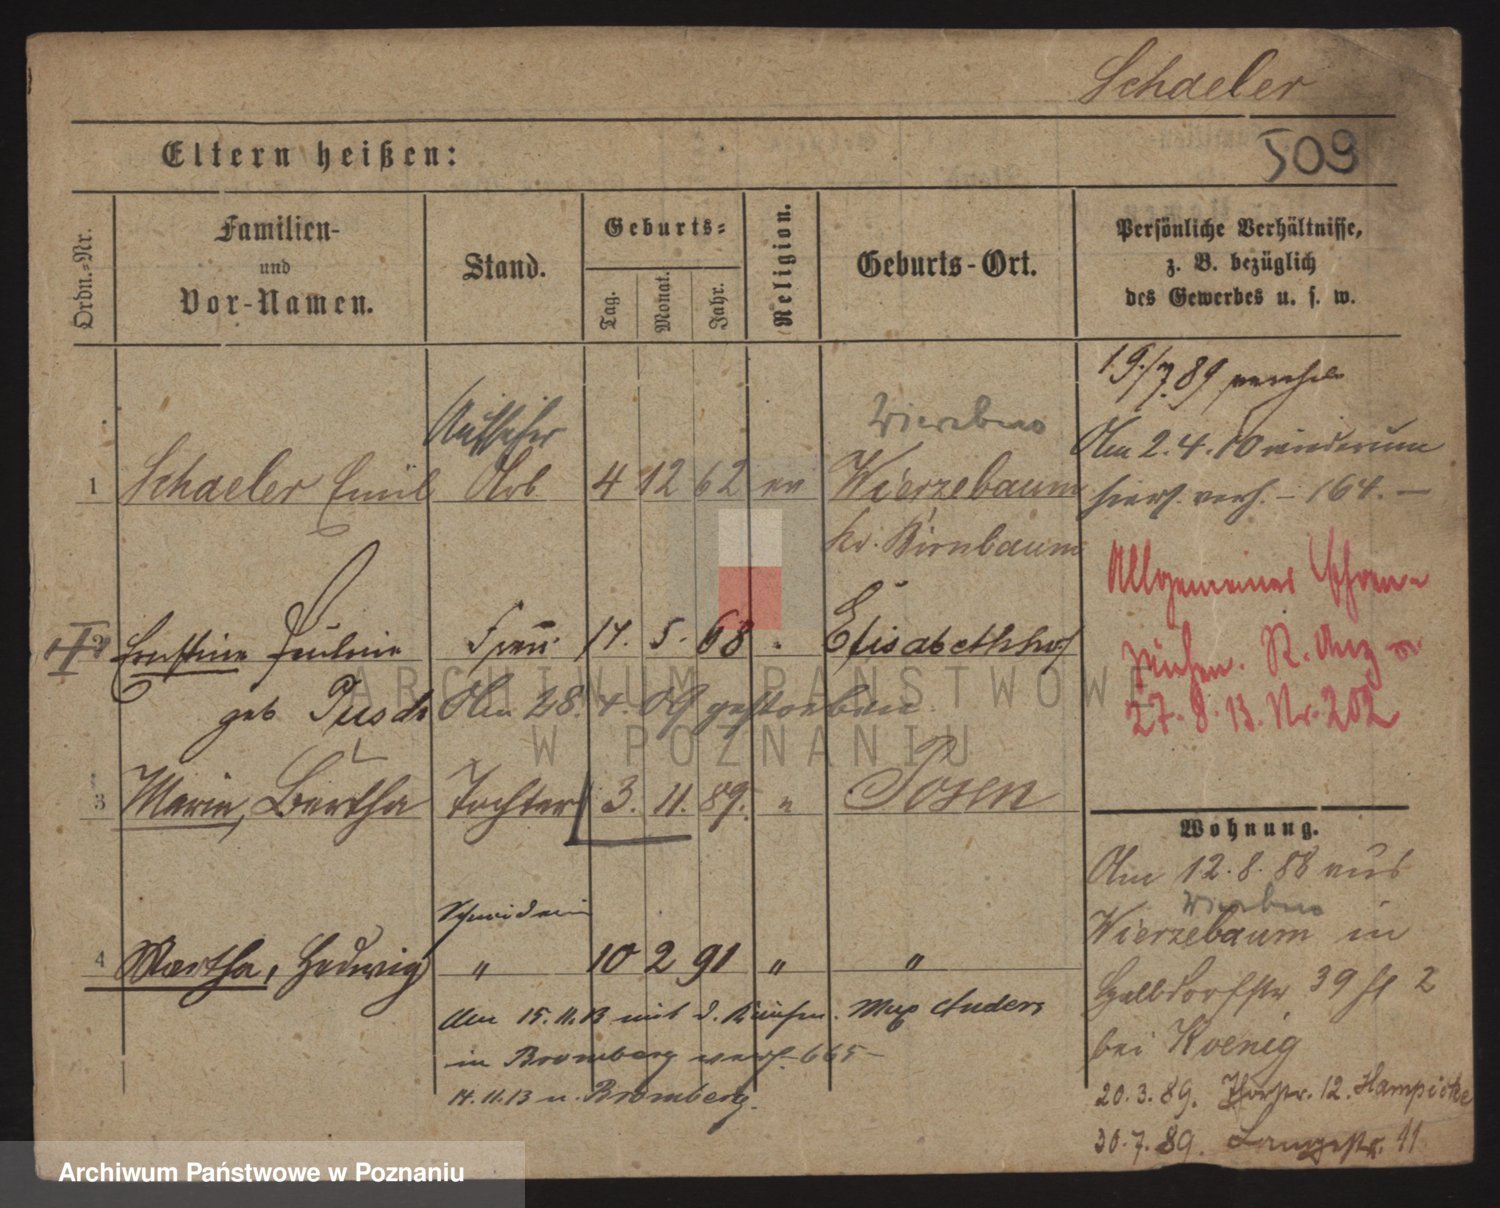 Schaeler
509
Eltern heißen:
Ordn.-Nr.
Familien-
und
Vor-Namen.
Stand.
Geburts-
Tag.
Monat.
Jahr.
Religion.
Geburts-Ort.
Persönliche Verhältnisse,
z. B. bezüglich
des Gewerbes u. s. w.
19./7. 89
Aufseher
Wierzebno
Am 2.4.10 wiederum
1 Schaeler Emil Arb 4 12 62 ev Wierzebaum
hiers. verh. – 164. –
Kr. Birnbaum
Allgemeines Ehren-
zeichen. R. Anz
27. 8. 13. Nr. 202
II
2 Ernstine Pauline Frau 17. 5. 68 " Elisabethhof
geb Am 28. 4. 09 gestorben
3 Marie, Bertha Tochter 3. 11. 89. " Posen
Wohnung.
Am 12. 8. 88 aus
Wierzebno
Wierzebaum in
Halbdorfstr 39 2
bei Koenig
20. 3. 89. Thorstr. 12. Hampicke
30. 7. 89. Langestr. 11
Schneiderin
4 Martha, Hedwig " 10 2 91 " "
Am 15. 11. 13 mit d. Kaufm. Max Anders
in Bromberg verh. 665 –
14. 11. 13 n. Bromberg.
ARCHIWUM PAŃSTWOWE
W POZNANIU
Archiwum Państwowe w Poznaniu